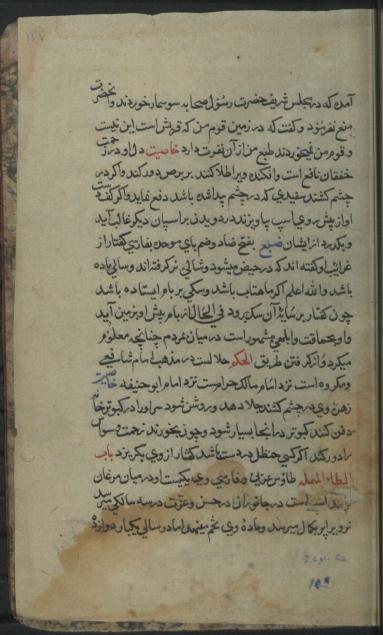 آمده که در مجلس شریف حضرت رسول صحابه سوسمار خوردند و آنحضرت
منع نفرمود و گفت که در زمین قوم من که قریش است این نیست
و قوم من نمیخوردند طبع من از آن نفرت دارد خاصیت دل او در زحمت
خفقان نافع است و اگر کنده ویرا طلا کنند بر برص دور کند و اگر در
چشم کشند سفیدی که در چشم پیدا شده باشد دفع نماید و اگر کف دست
او از پیش روی اسپ بیاویزند در دویدن بر اسپان دیگر غالب آید
و بگذرد از ایشان ضبع بفتح ضاد و ضم بای موحده بفارسی کفتار از
غرایب او گفته اند که در حیض میشود و سالی نر گرفته اند و سالی ماده
باشد والله اعلم اگر ماهتاب باشد و سگی بر بام ایستاده باشد
چون کفتار بر سایه آن سگ رود فی الحال از بام بیفتد و بزمین آید
و او بحماقت و ابلهی مشهور است در میان مردم چنانچه معلوم
میکردد از گرفتن طریق الحکم حلالست در مذهب امام شافعی
و مکروه است نزد امام مالک حرامست نزد امام ابو حنیفه خاصیت
زهره وی در چشم کشند جلا دهد و روشن شود سر او را در کبوترخانه
دفن کنند کبوتر در انجا بسیار شود و چون بخورند زحمت وسواس
را دور کند اگر کسی حنظل در دست باشد کفتار از وی بگریزد باب
الطاء المهمله طاوس عربی و فارسی وی یکیست و در میان مرغان
است در جانوران در حسن و عزت در سه سالگی میرسد
نر و پر او بکمال میرسد و ماده وی تخم مینهد اما در سالی یکبار دوازده